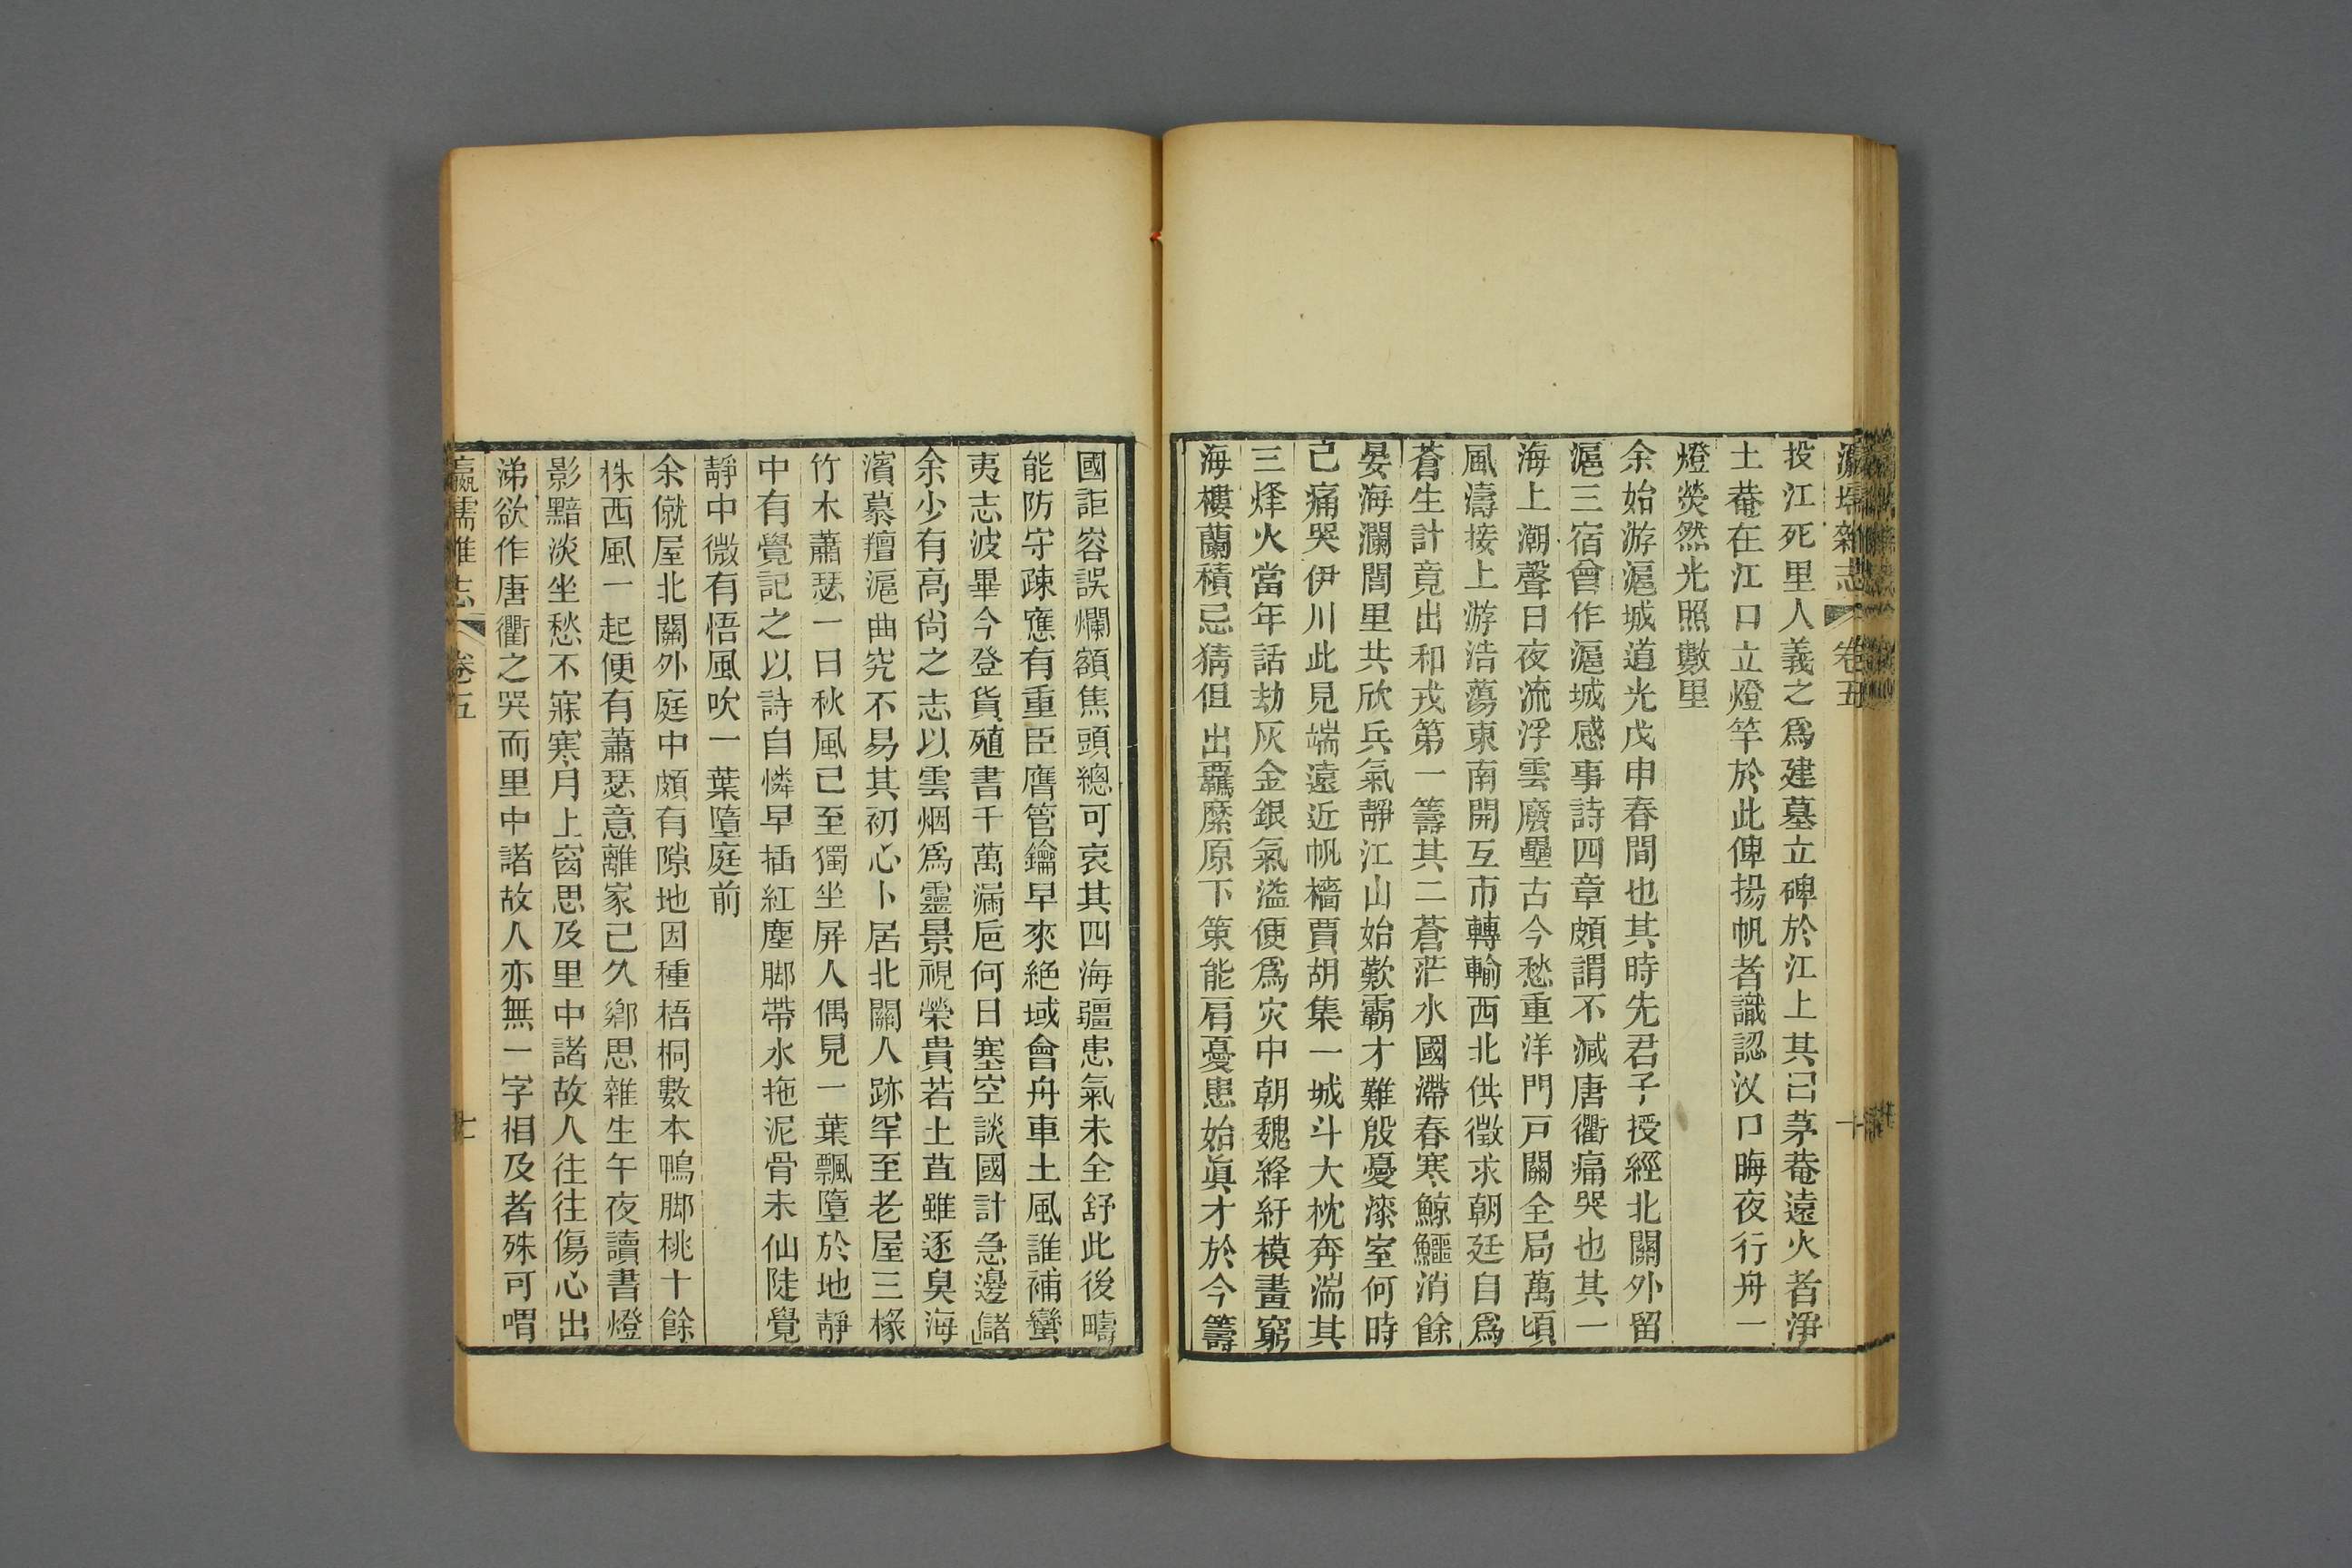 瀛壖雜志 卷五 十
投江死里人義之爲建墓立碑於江上其曰茅菴遠火者淨
土菴在江口立燈竿於此俾揚帆者識認汊口晦夜行舟一
燈熒然光照數里
余始游滬城道光戊申春間也其時先君子授經北關外留
滬三宿曾作滬城感事詩四章頗謂不減唐衢痛哭也其一
海上潮聲日夜流浮雲廢壘古今愁重洋門戸關全局萬頃
風濤接上游浩蕩東南開互市轉輸西北供徵求朝廷自爲
蒼生計竟出和戎第一籌其二蒼茫水國滯春寒鯨鱷消餘
晏海瀾閭里共欣兵氣靜江山始歎霸才難殷憂漆室何時
已痛哭伊川此見端遠近帆檣賈胡集一城斗大枕奔湍其
三烽火當年話劫灰金銀氣溢便爲灾中朝魏絳紆模畫窮
海樓蘭積忌猜但出羈縻原下策能肩憂患始眞才於今籌
國詎容誤爛額焦頭總可哀其四海疆患氣未全舒此後疇
能防守疎應有重臣膺管鑰早來絕域會舟車土風誰補蠻
夷志波畢今登貨殖書千萬漏巵何日塞空談國計急邊儲
余少有高尙之志以雲烟爲靈景視榮貴若土苴雖逐臭海
濱慕羶滬曲究不易其初心卜居北關人跡罕至老屋三椽
竹木蕭瑟一日秋風已至獨坐屛人偶見一葉飄墮於地靜
中有覺記之以詩自憐早插紅塵脚帶水拖泥骨未仙陡覺
靜中微有悟風吹一葉墮庭前
余僦屋北關外庭中頗有隙地因種梧桐數本鴨脚桃十餘
株西風一起便有蕭瑟意離家已久鄉思雜生午夜讀書燈
影黯淡坐愁不寐寒月上窗思及里中諸故人往往傷心出
涕欲作唐衢之哭而里中諸故人亦無一字相及者殊可喟
瀛壖雜志 卷五